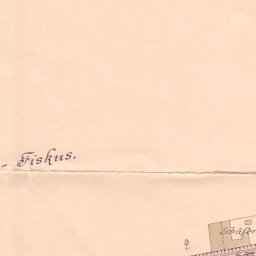 - Fiskus.
Schäfer